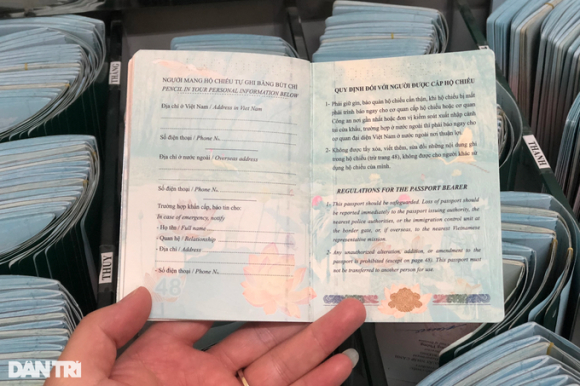 NGƯỜI MANG HỘ CHIẾU TỰ GHI BẰNG BÚT CHÌ
PENCIL IN YOUR PERSONAL INFORMATION BELOW
Địa chỉ ở Việt Nam / Address in Viet Nam
Số điện thoại / Phone No.
Địa chỉ ở nước ngoài / Overseas address
Số điện thoại / Phone No.
Trường hợp khẩn cấp, báo tin cho:
In case of emergency, notify
- Họ tên / Full name
- Quan hệ / Relationship
- Địa chỉ / Address
- Số điện thoại / Phone No.
48
QUY ĐỊNH ĐỐI VỚI NGƯỜI ĐƯỢC CẤP HỘ CHIẾU
1- Phải giữ gìn, bảo quản hộ chiếu cẩn thận; khi hộ chiếu bị mất
phải trình báo ngay cho cơ quan cấp hộ chiếu hoặc cơ quan
Công an nơi gần nhất hoặc đơn vị kiểm soát xuất nhập cảnh
tại cửa khẩu, trường hợp ở nước ngoài thì phải báo ngay cho
cơ quan đại diện Việt Nam ở nước ngoài nơi thuận lợi.
2- Không được tẩy xóa, viết thêm, sửa đổi những nội dung ghi
trong hộ chiếu (trừ trang 48), không được cho người khác sử
dụng hộ chiếu của mình.
REGULATIONS FOR THE PASSPORT BEARER
1- This passport should be safeguarded. Loss of passport should
be reported immediately to the passport issuing authority, the
nearest police authorities, or the immigration control unit at
the border gate, or, if overseas, to the nearest Vietnamese
representative mission.
2- Any unauthorized alteration, addition, or amendment to the
passport is prohibited (except on page 48). This passport must
not be transferred to another person for use.
THANG
THANH
THỦY
THANH
DÂN TRÍ